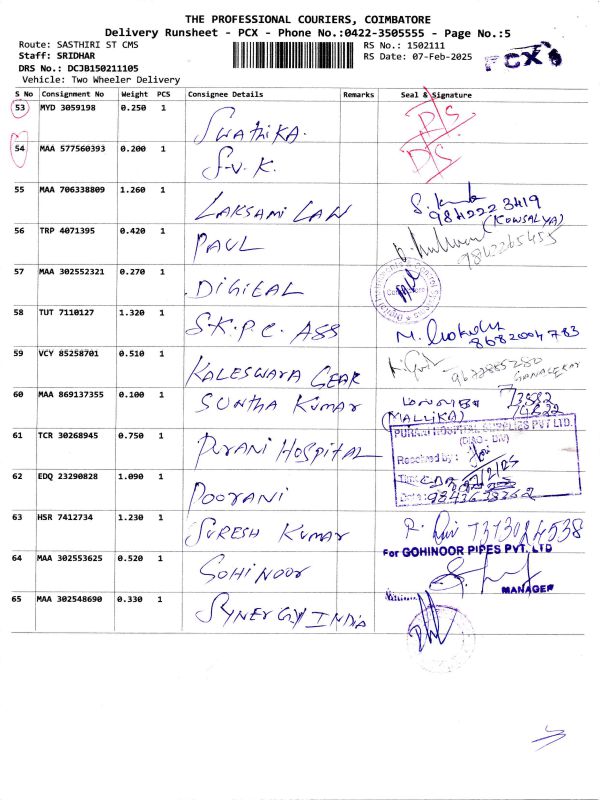 THE PROFESSIONAL COURIERS, COIMBATORE
Delivery Runsheet - PCX - Phone No.:0422-3505555 - Page No.:5
Route: SASTHIRI ST CMS RS No.: 1502111
Staff: SRIDHAR RS Date: 07-Feb-2025
PCX
DRS No.: DCJB150211105
Vehicle: Two Wheeler Delivery
S No Consignment No Weight PCS Consignee Details Remarks Seal & Signature
53 MYD 3059198 0.250 1 SWATHIKA. D/S
54 MAA 577560393 0.200 1 S.V.K. D/S
55 MAA 706338809 1.260 1 LAKSHMI LAW 9842223419
(KOWSALYA)
56 TRP 4071395 0.420 1 PAUL 9842265455
57 MAA 302552321 0.270 1 DIGITAL
58 TUT 7110127 1.320 1 S.K.P.C. ASS 8682004783
59 VCY 85258701 0.510 1 KALESWARA GEAR
MANAGER
60 MAA 869137355 0.100 1 SUNTHA KUMAR
(MALLIKA)
61 TCR 30268945 0.750 1 PURANI HOSPITAL
PURANI HOSPITAL SUPPLIES PVT LTD.
(DIAG - DIV)
Received by :
Time
Date :
62 EDQ 23290828 1.090 1 POORANI
63 HSR 7412734 1.230 1 SURESH KUMAR
64 MAA 302553625 0.520 1 GOHINOOR
For GOHINOOR PIPES PVT. LTD
MANAGER
65 MAA 302548690 0.330 1 SYNERGY INDIA